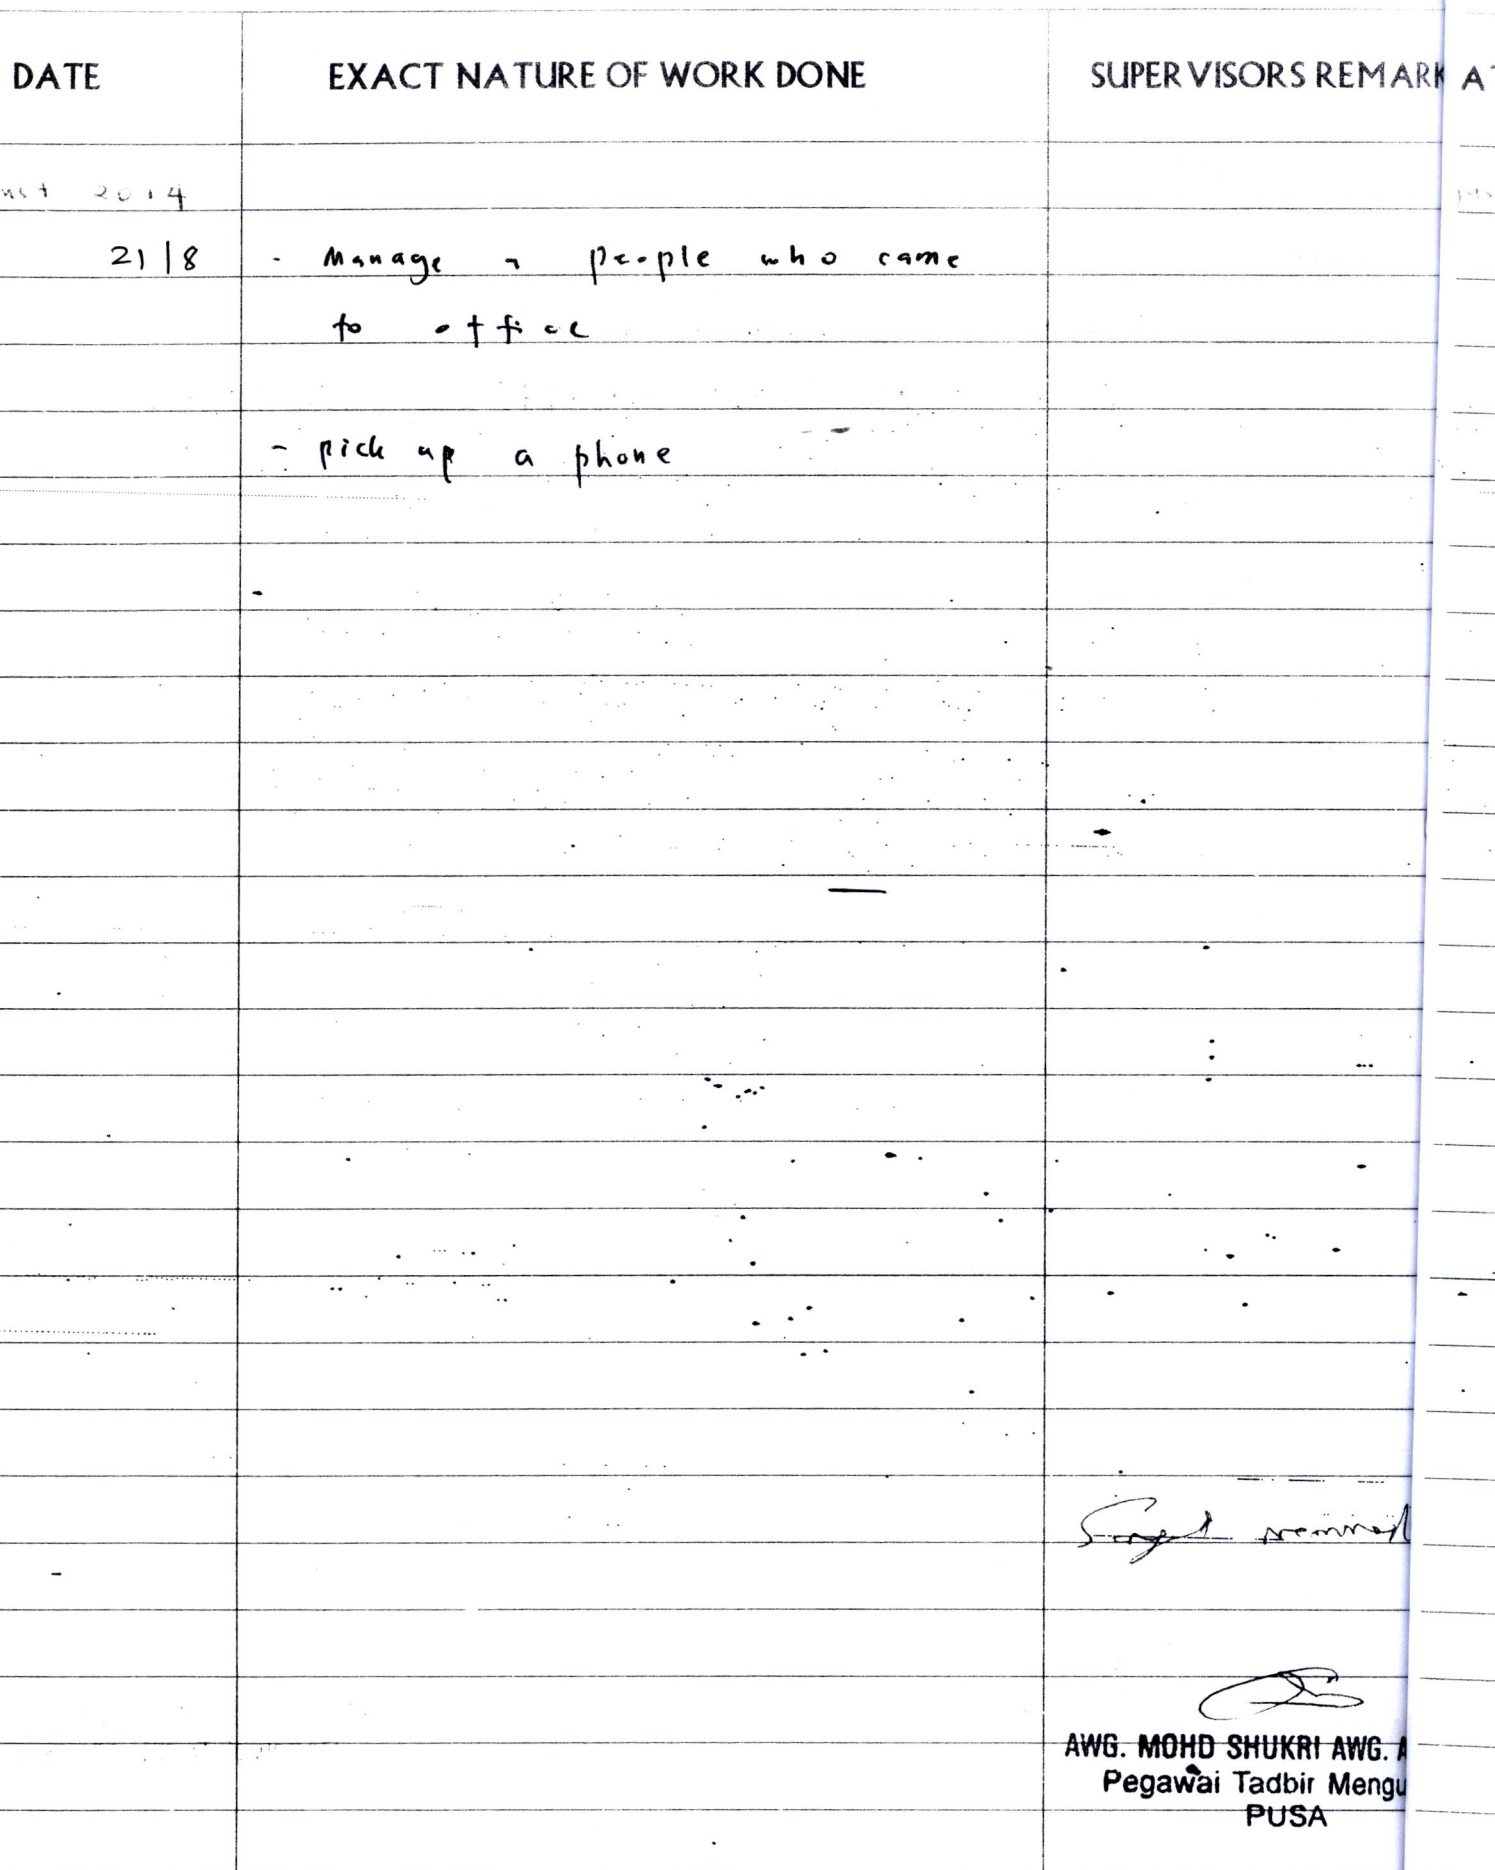 DATE EXACT NATURE OF WORK DONE SUPERVISORS REMARK A
ust 2014
21/8 - Manage a people who came
to office
- pick up a phone
AWG. MOHD SHUKRI AWG. A
Pegawai Tadbir Mengu
PUSA